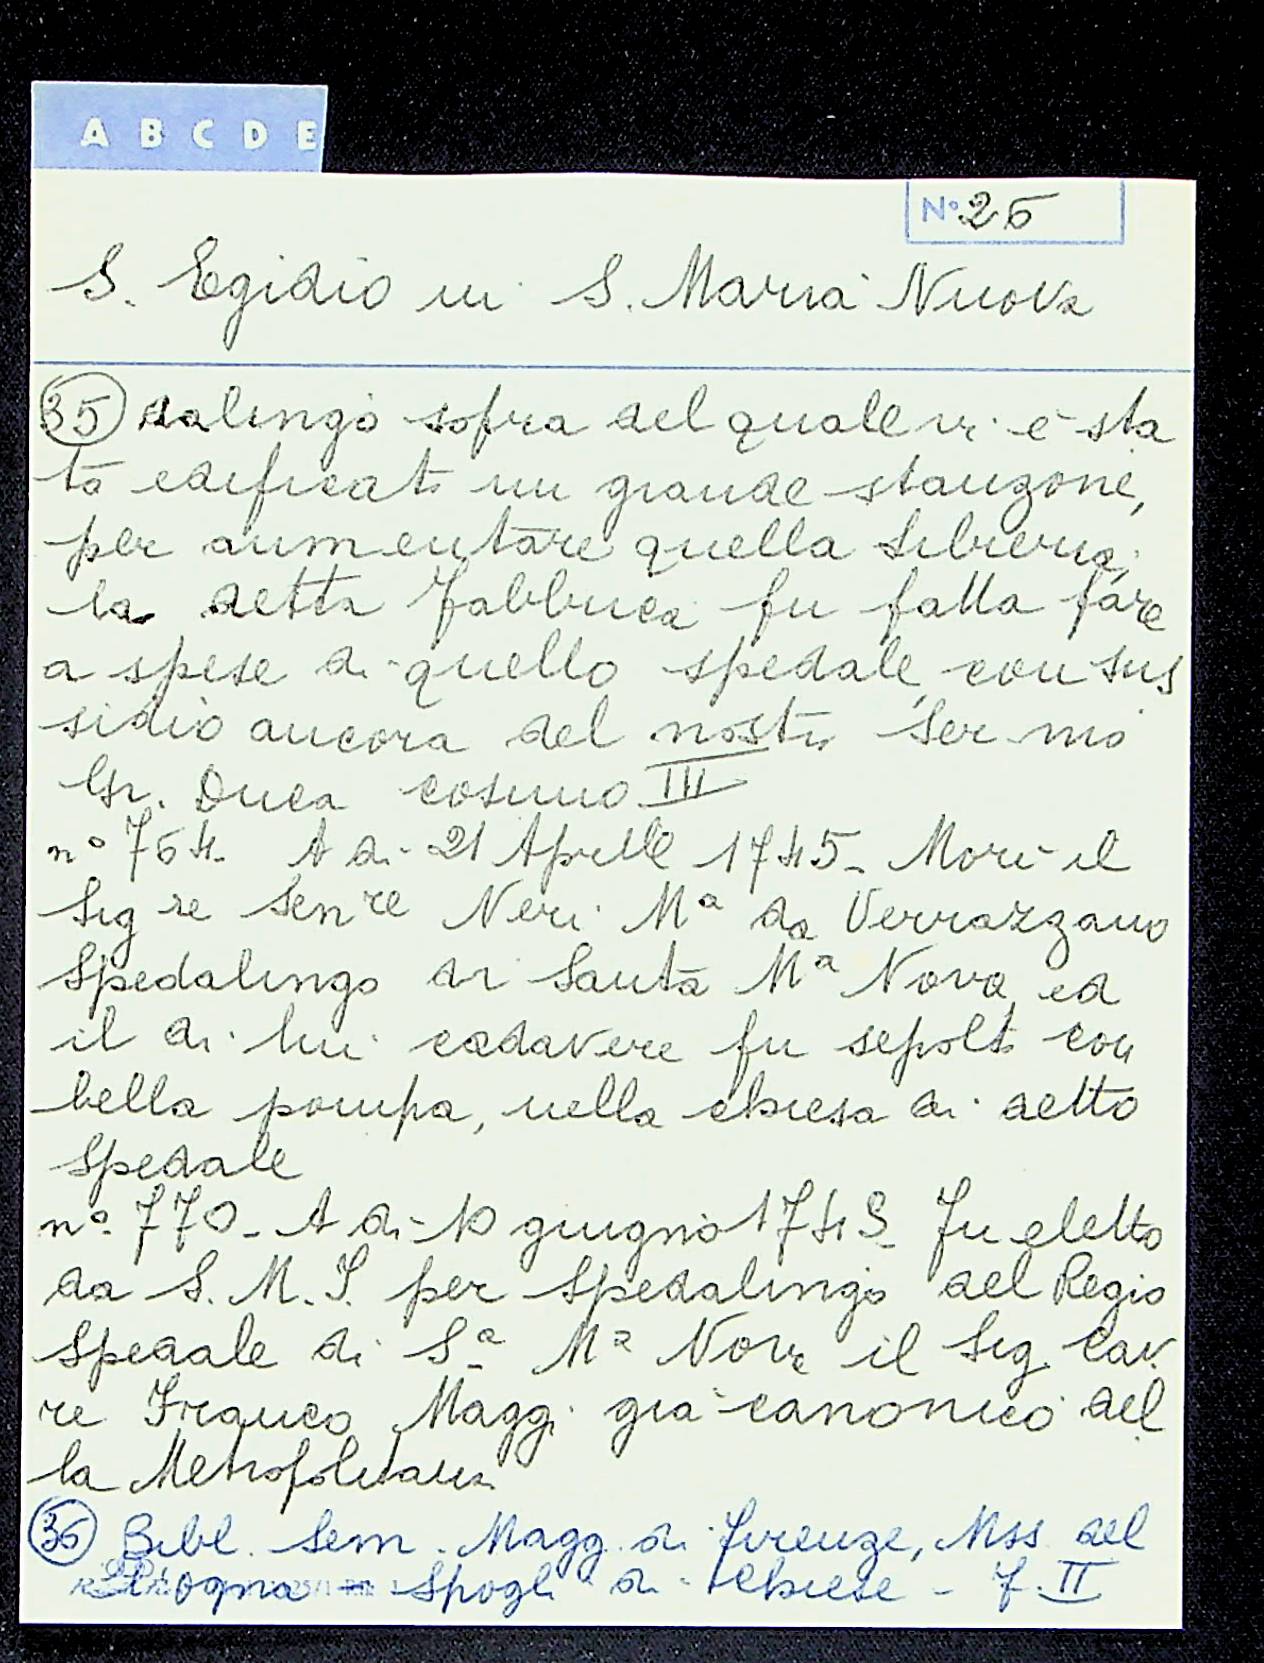 A B C D E
N° 26
S. Egidio in S. Maria Nuova
35 dalingo sopra del quale vi è sta
to edificato un grande stanzone,
per aumentare quella Libreria;
la detta Fabbrica fu fatta fare
a spese di quello spedale, con sus
sidio ancora del nostro Ser.mo
Gr. Duca Cosimo III
n° 764. A di 21 Aprile 1745. Morì il
Sig re Sen re Neri Mª da Verrazzano
Spedalingo di Santa Mª Nova, ed
il di lui cadavere fu sepolto con
bella pompa, nella chiesa di detto
Spedale
n° 770. A di 10 giugno 1745 Fu eletto
da S. M. I. per Spedalingo del Regio
Spedale di Sª Mª Nova il Sig. Cav.
re Franco Maggi già canonico del
la Metropolitana.
36 Bibl. Sem. Magg. di Firenze, Mss. del
Spogli di Chiese - F. II